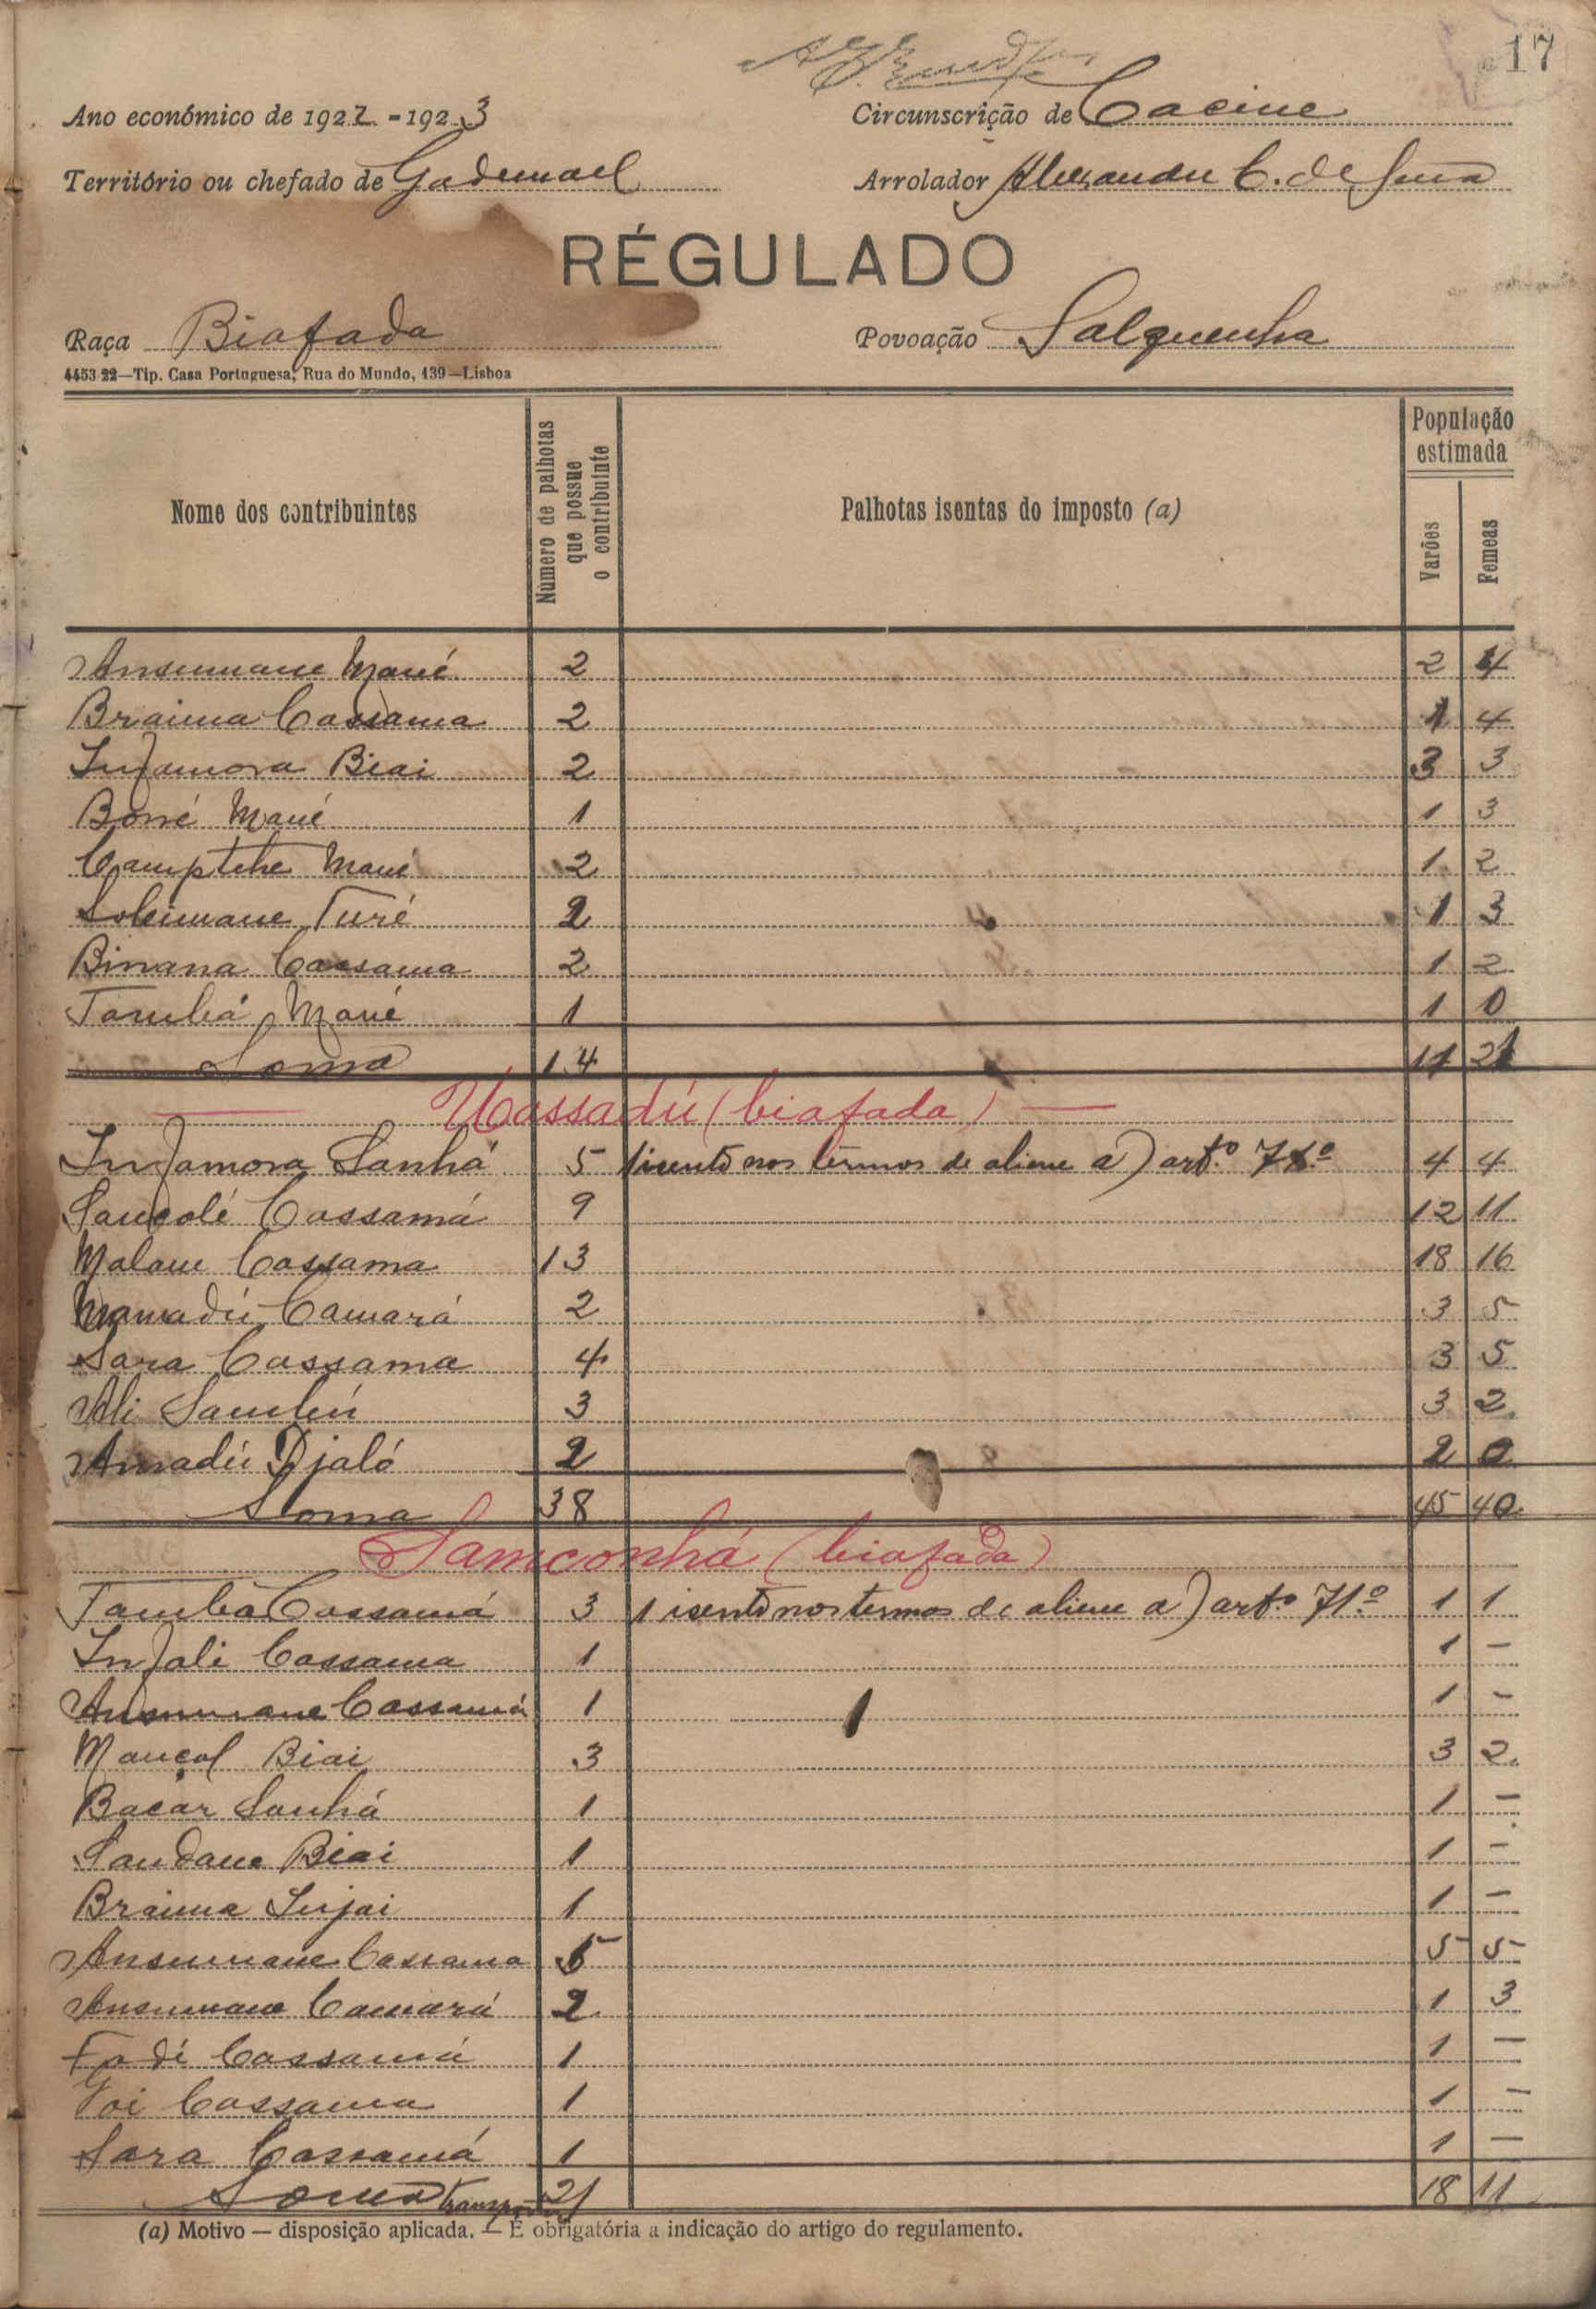 17
Ano económico de 1922-1923 Circunscrição de Cacine
Território ou chefado de Gademael Arrolador Alexandre C. de Sena
RÉGULADO
Raça Biafada Povoação Salquenha
4453 22—Tip. Casa Portuguesa, Rua do Mundo, 139—Lisboa
Nome dos contribuintes Número de palhotas que possue o contribuinte Palhotas isentas do imposto (a) População estimada Varões Femeas
Ansumane Mané 2 2 4
Braima Cassama 2 1 4
Injamora Biai 2 3 3
Borré Mané 1 1 3
Camptche Mané 2 1 2
Soleimane Turé 2 1 3
Binana Cassama 2 1 2
Tambá Mané 1 1 0
Soma 14 11 21
Cassadú (biafada)
Injamora Sanhá 5 1 isento nos termos de aliene a) artº 71º 4 4
Sancolé Cassamá 9 12 11
Malam Cassama 13 18 16
Mamadú Camará 2 3 5
Sara Cassama 4 3 5
Ali Sambú 3 3 2
Amadú Djaló 2 2 0
Soma 38 45 40
Samconhá (biafada)
Tambá Cassamá 3 1 isento nos termos de aliene a) artº 71º 1 1
Injali Cassama 1 1 —
Ansumane Cassamá 1 1 —
Mançal Biai 3 3 2
Bacar Sanhá 1 1 —
Sandane Biai 1 1 —
Braima Injai 1 1 —
Ansumane Cassama 5 5 5
Ansumane Camará 2 1 3
Fodé Cassamá 1 1 —
Cassama 1 1 —
Sara Cassamá 1 1 —
Soma 21 18 11
(a) Motivo — disposição aplicada. — É obrigatória a indicação do artigo do regulamento.